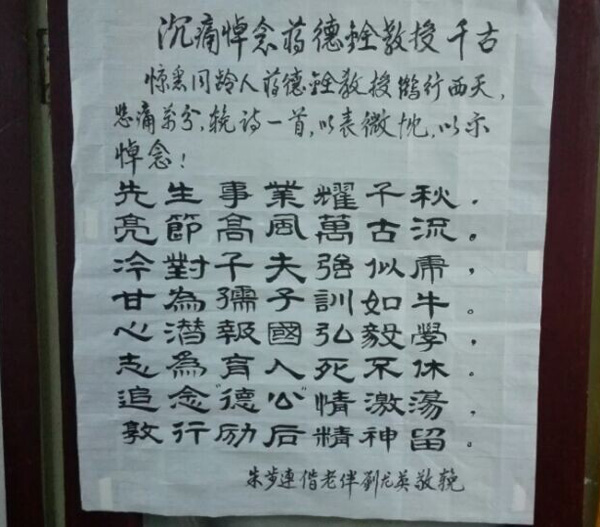 沉痛悼念蒋德銓教授千古
惊悉同龄人蒋德銓教授鶴行西天,
悲痛万分,輓诗一首,以表微忱,以示
悼念!
先生事業耀千秋.
亮節高風萬古流。
冷對千夫強似虎,
甘為孺子訓如牛。
心潜報國弘毅學,
志為育人死不休。
追念"德公"情激蕩,
敦行励后精神留。
朱步連偕老伴劉尤英敬輓